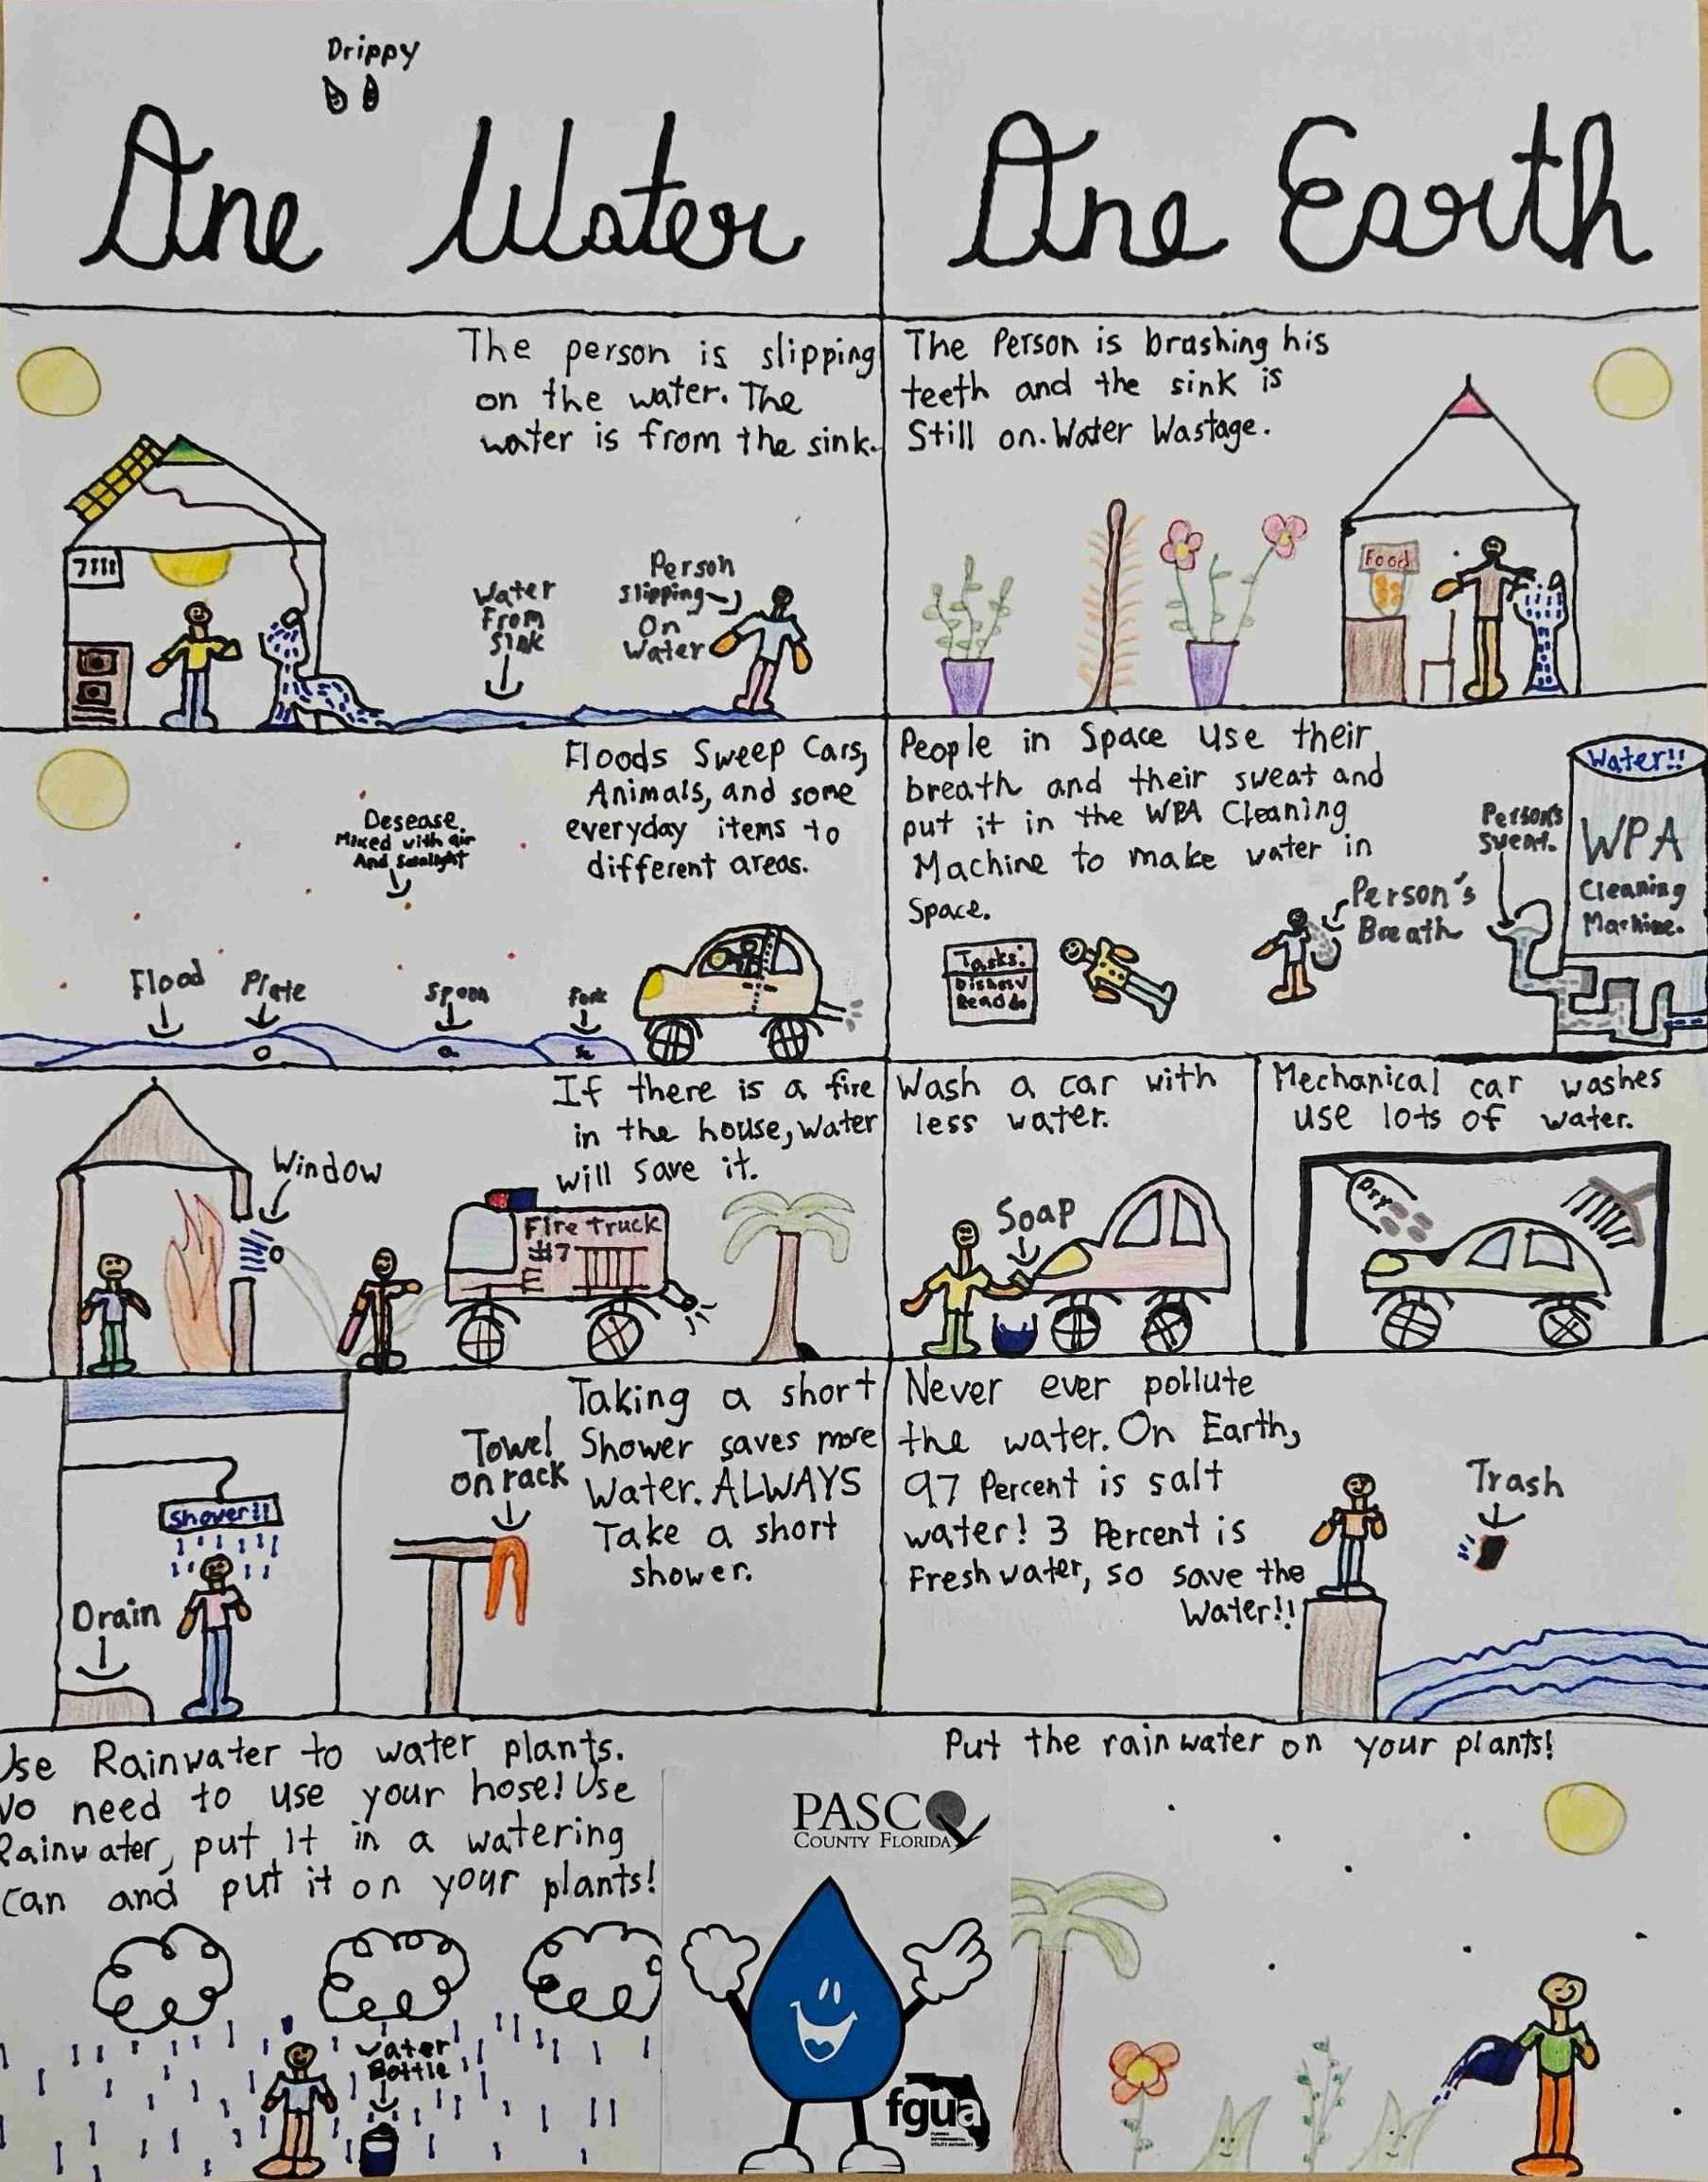 Drippy
One Water
One Earth
The person is slipping
on the water. The
water is from the sink.
Water
From
Sink
Person
Slipping
On
Water
The Person is brushing his
teeth and the sink is
Still on. Water Wastage.
Food
Floods Sweep Cars,
Animals, and some
everyday items to
different areas.
Desease.
Mixed with air
And Sunlight
Flood
Plate
Spoon
Fork
People in Space use their
breath and their sweat and
put it in the WPA Cleaning
Machine to make water in
Space.
Tasks:
Person's
Breath
Person's
Sweat.
Water!!
WPA
Cleaning
Machine.
If there is a fire
in the house, water
will save it.
Window
Fire truck
#7
Wash a car with
less water.
Soap
Mechanical car washes
use lots of water.
Dry
Taking a short
Shower saves more
Water. ALWAYS
Take a short
shower.
Towel
on rack
Shower!!
Drain
Never ever pollute
the water. On Earth,
97 Percent is salt
water! 3 Percent is
Fresh water, so save the
Water!!
Trash
Use Rainwater to water plants.
No need to use your hose! Use
Rainwater, put it in a watering
can and put it on your plants!
Water
Bottle
PASCO
COUNTY FLORIDA
fgua
FLORIDA
GOVERNMENTAL
UTILITY AUTHORITY
Put the rain water on your plants!